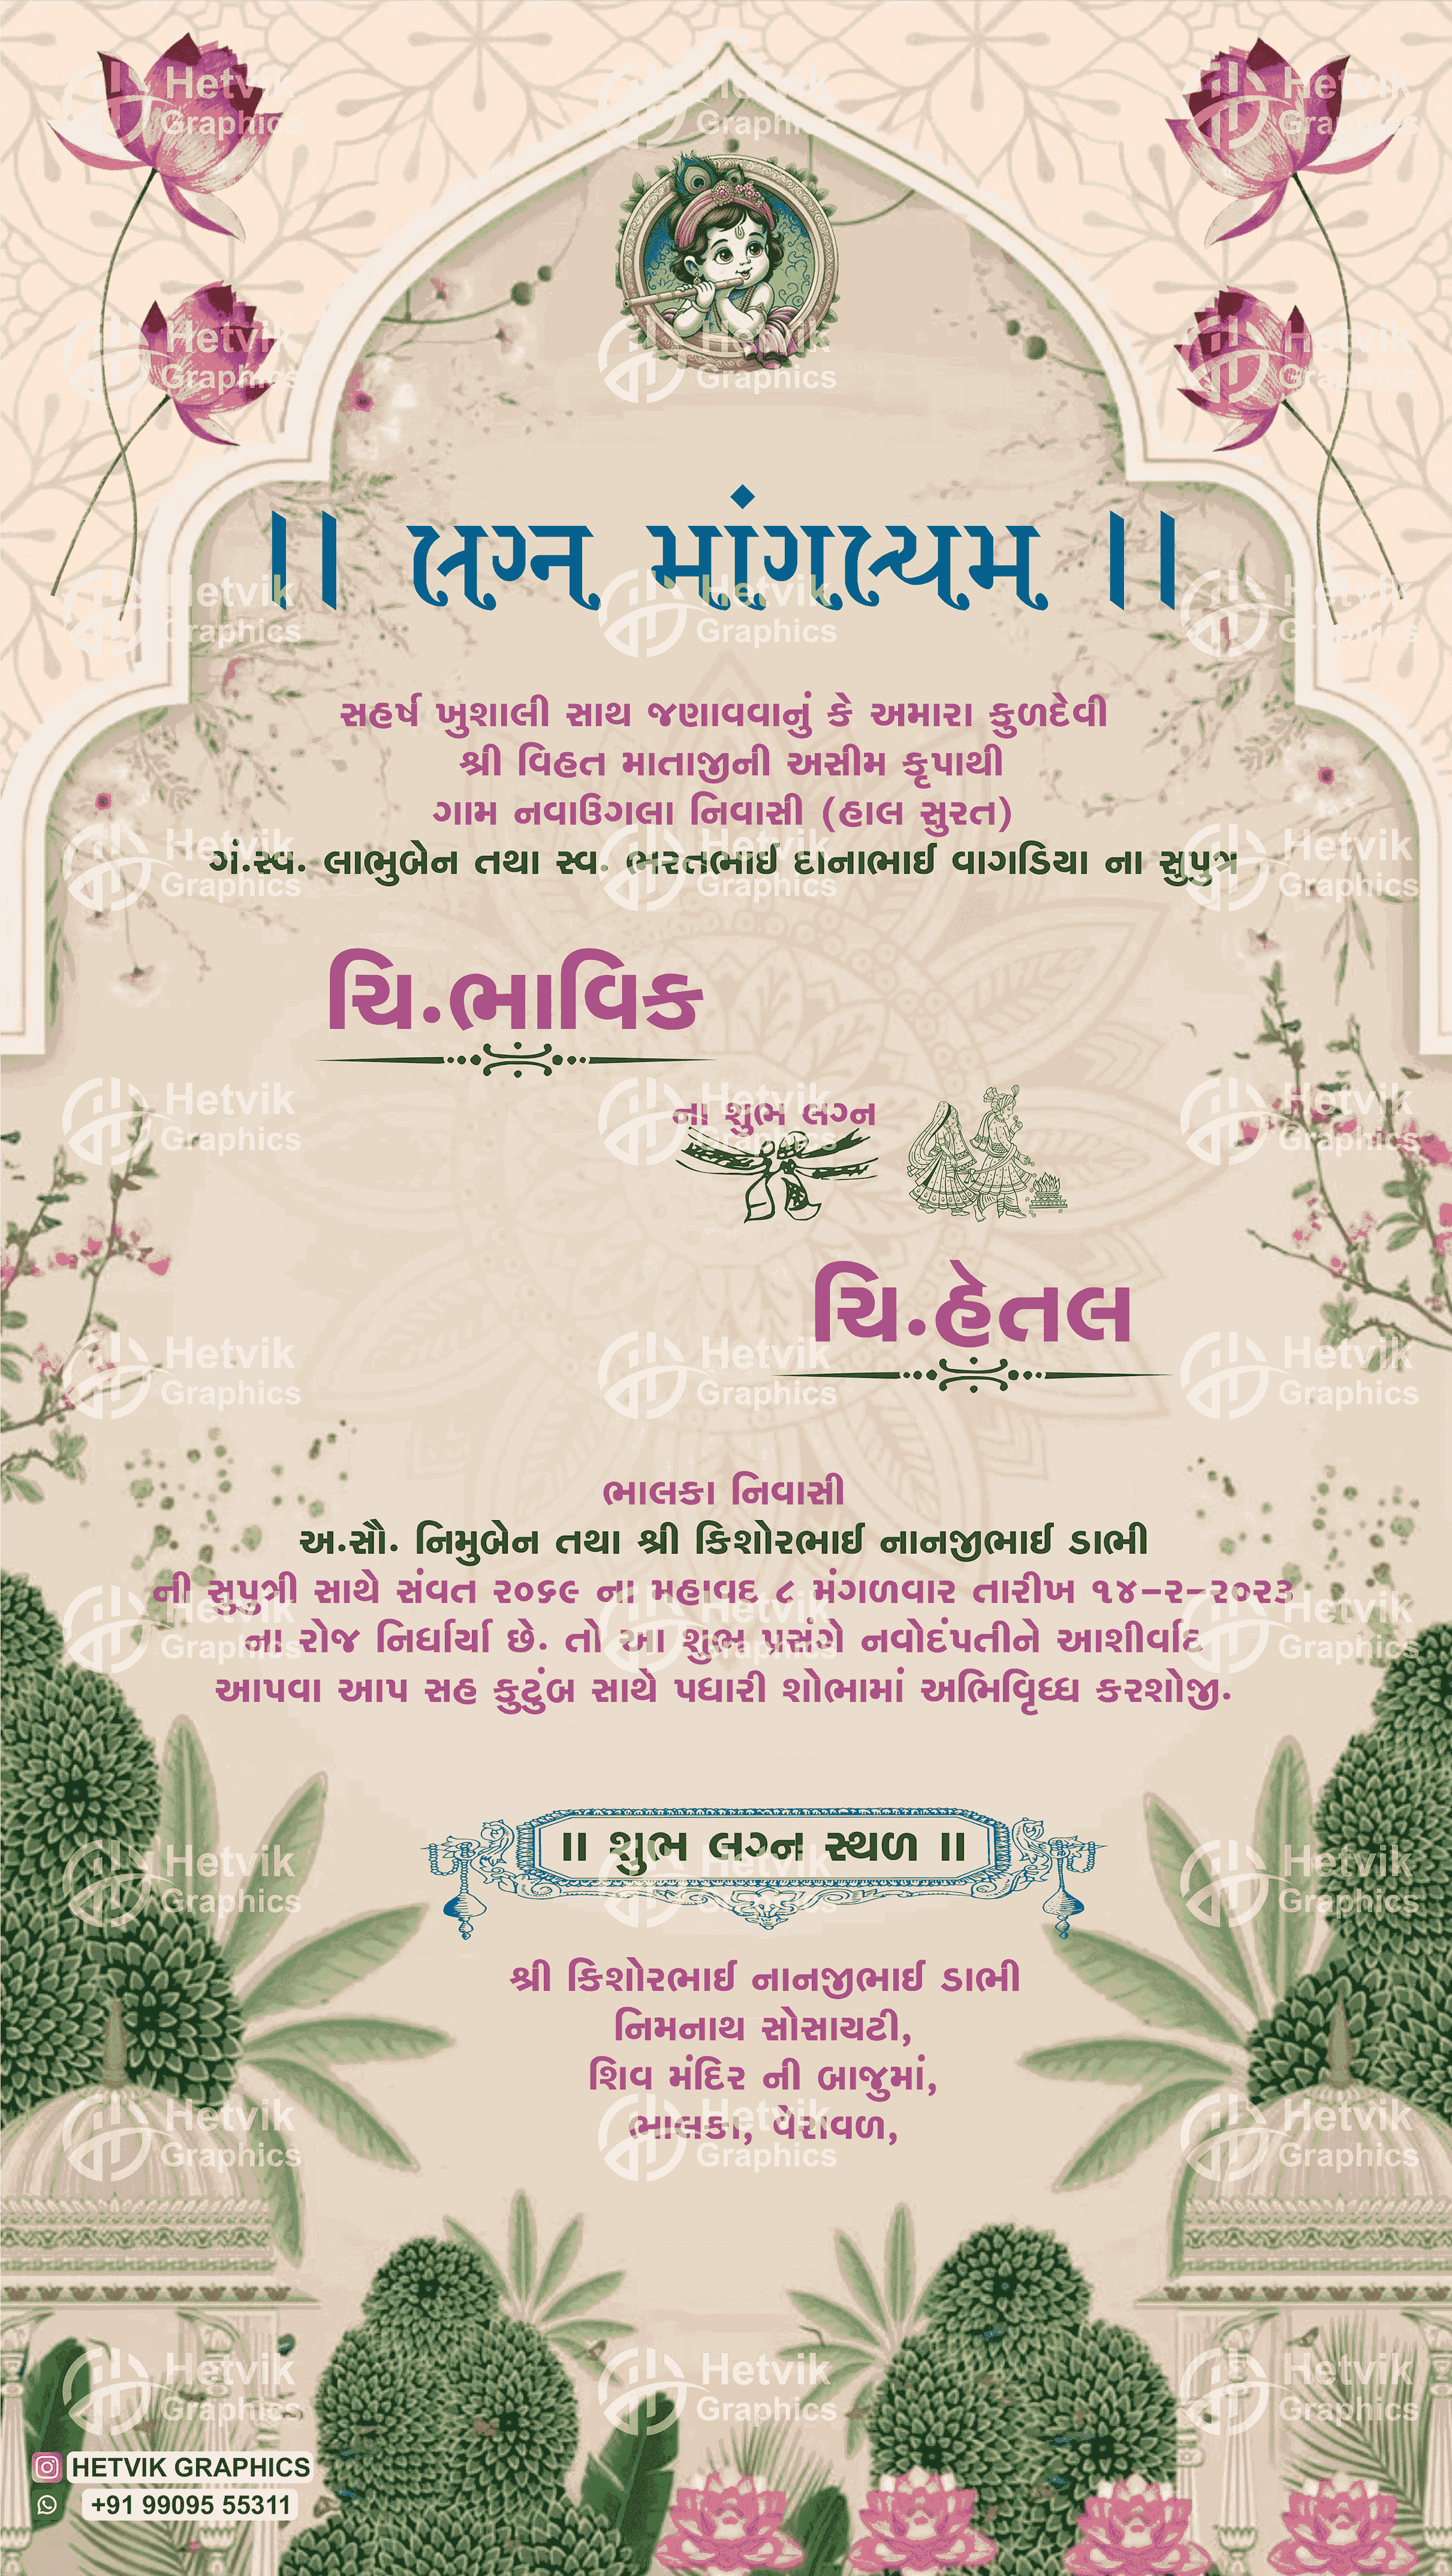 ।। લગ્ન માંગલ્યમ ।।
સહર્ષ ખુશાલી સાથ જણાવવાનું કે અમારા કુળદેવી
શ્રી વિહત માતાજીની અસીમ કૃપાથી
ગામ નવાઉગલા નિવાસી (હાલ સુરત)
ગં.સ્વ. લાભુબેન તથા સ્વ. ભરતભાઈ દાનાભાઈ વાગડિયા ના સુપુત્ર
ચિ.ભાવિક
ના શુભ લગ્ન
ચિ.હેતલ
ભાલકા નિવાસી
અ.સૌ. નિમુબેન તથા શ્રી કિશોરભાઈ નાનજીભાઈ ડાભી
ની સુપુત્રી સાથે સંવત ૨૦૬૯ ના મહાવદ ૮ મંગળવાર તારીખ ૧૪-૨-૨૦૨૩
ના રોજ નિર્ધાર્યા છે. તો આ શુભ પ્રસંગે નવોદંપતીને આશીર્વાદ
આપવા આપ સહ કુટુંબ સાથે પધારી શોભામાં અભિવૃિધ્ધ કરશોજી.
।। શુભ લગ્ન સ્થળ ।।
શ્રી કિશોરભાઈ નાનજીભાઈ ડાભી
નિમનાથ સોસાયટી,
શિવ મંદિર ની બાજુમાં,
ભાલકા, વેરાવળ,
HETVIK GRAPHICS
+91 99095 55311
Hetvik
Graphics